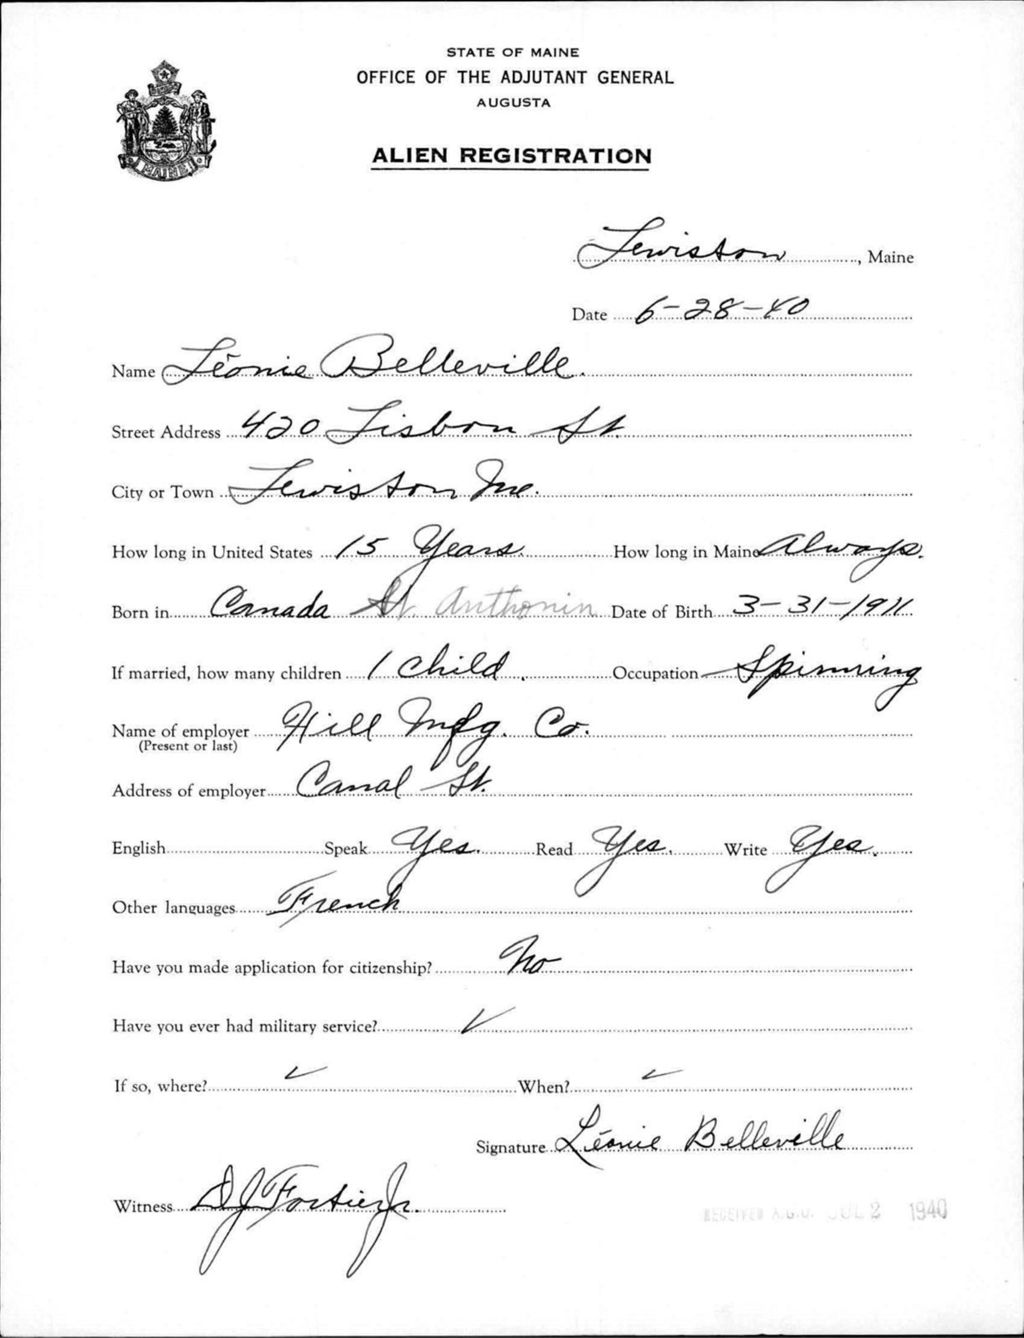 STATE OF MAINE
OFFICE OF THE ADJUTANT GENERAL
AUGUSTA
ALIEN REGISTRATION
MAINE
Lewiston, Maine
Date 6-28-40
Name Léonie Belleville.
Street Address 420 Lisbon St.
City or Town Lewiston Me.
How long in United States 15 Years. How long in Maine Always.
Born in Canada St. Anthonin Date of Birth 3-31-1911
If married, how many children 1 Child. Occupation Spinning
Name of employer Hill Mfg. Co.
(Present or last)
Address of employer Canal St.
English Speak Yes. Read Yes. Write Yes.
Other languages French
Have you made application for citizenship? No
Have you ever had military service? ✓
If so, where? ✓ When? ✓
Signature Léonie Belleville
Witness D J Fortier Jr.
RECEIVED A.G.O. JUL 2 1940